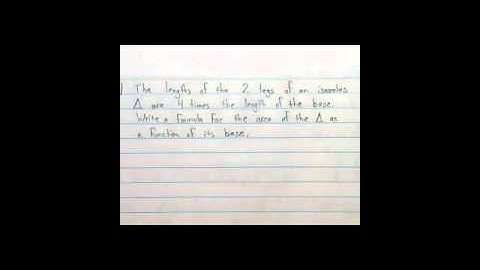 1 The lengths of the 2 legs of an isosceles
Δ are 4 times the length of the base.
Write a formula for the area of the Δ as
a function of its base.